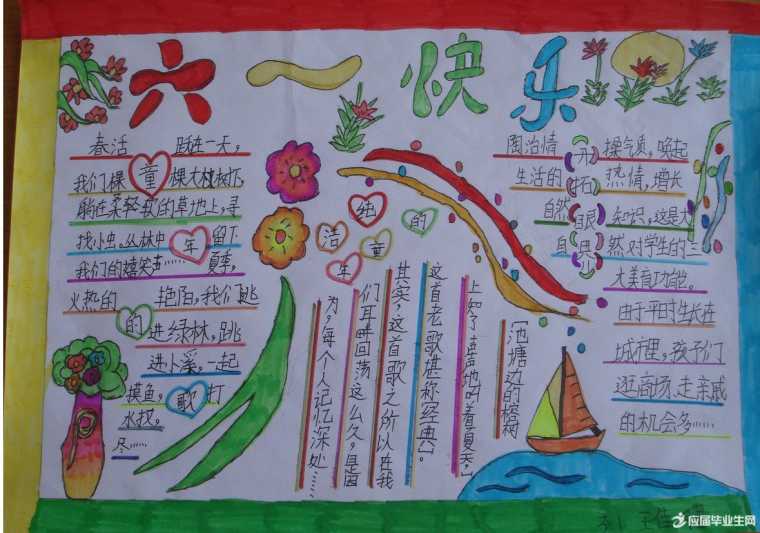 六一快乐
春活 跃在一天,
我们棵 童 棵大
躺在柔轻软的草地上,寻
找小虫。丛林中 年 留下
我们的嬉笑声……夏季,
火热的 艳阳,我们跳
的 进绿林,跳
进小溪,一起
摸鱼, 歌 打
水
尽……
纯洁的童年
〔池塘边的榕树
上知了声声地叫着夏天,〕
这首老歌堪称经典〕。
其实,这首歌之所以在我
们耳畔回荡这么久,是因
为,每个人记忆深处……
开拓眼界
陶冶情 操气质,唤起
生活的 热情,增长
自然 知识,这是大
自 然对学生的三
大美育功能。
由于平时生长在
城市里,孩子们
逛商场、走亲戚
的机会多……
王佳
应届毕业生网